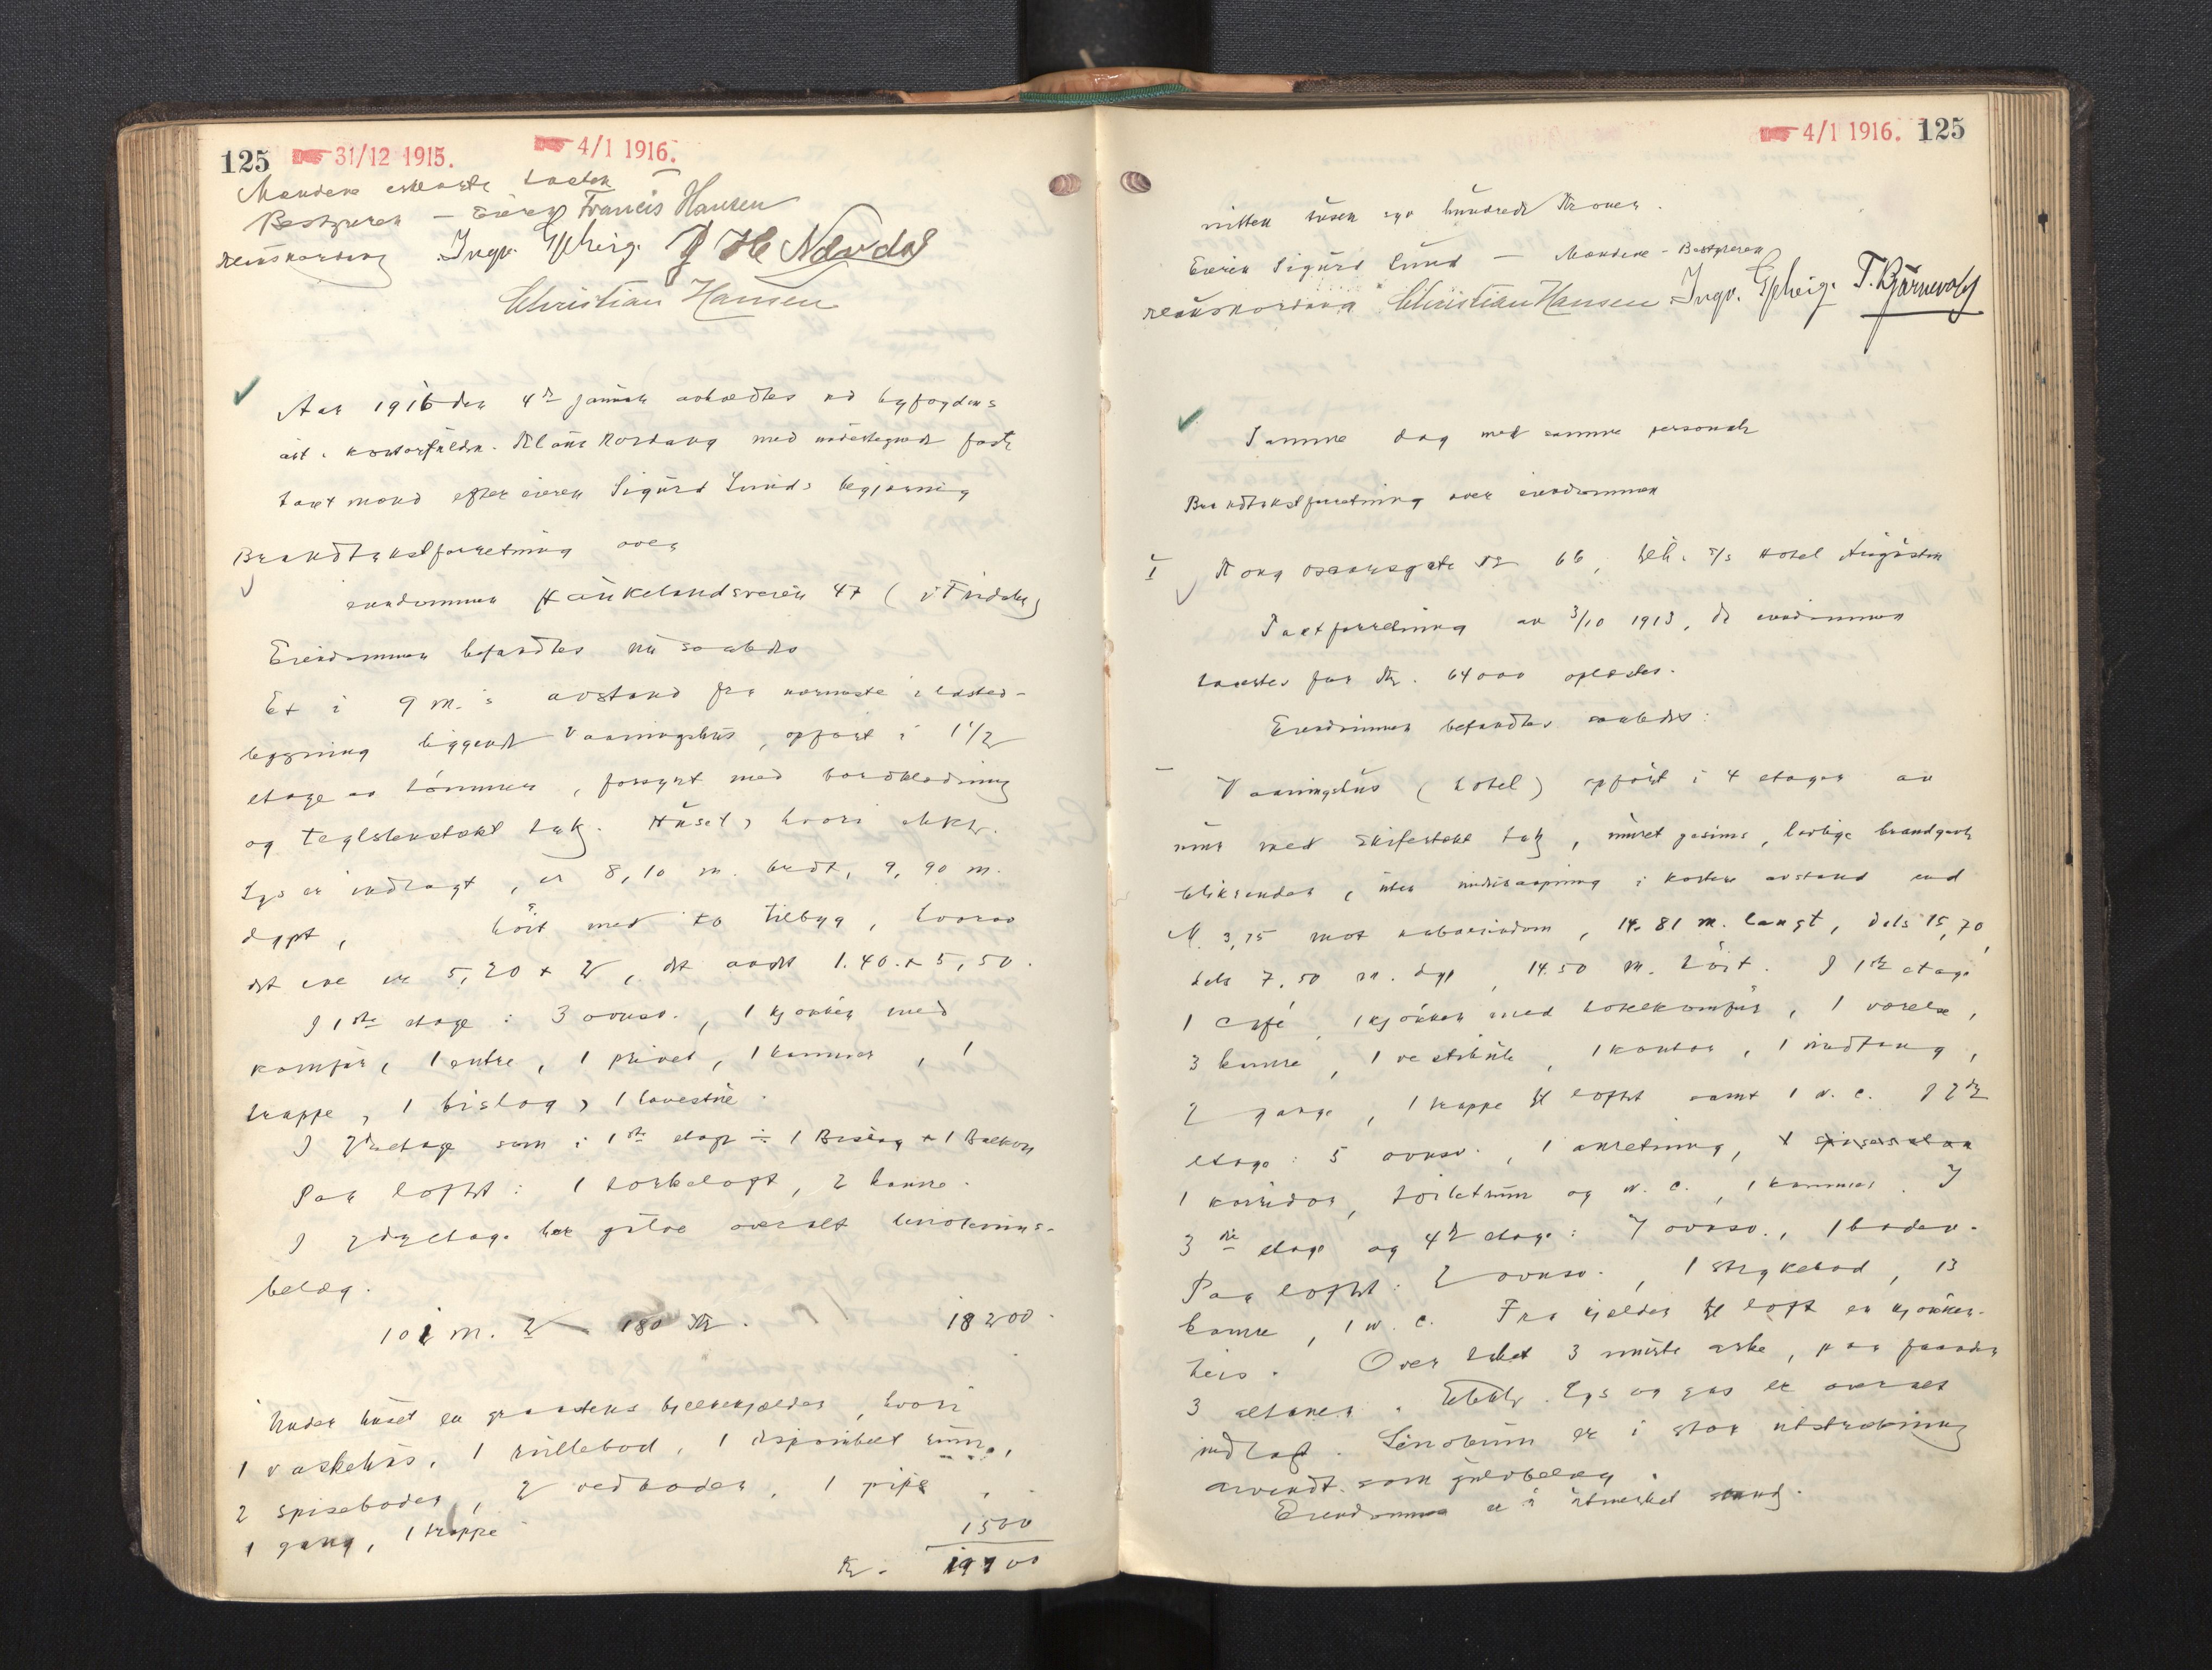 125 31/12 1915. 4/1 1916.
Mændene taxten
Bestyreren — Eieren Francis Hansen
Klaus Kordang Ingv. J H Nævdal
Christian Hansen
Aar 1916 den 4de januar avholdtes ved byfogdens
aut. kontorfuldm. Klaus Kordang med undertegnede faste
taxtmænd efter eieren Sigurd Lunds begjæring
Brandtakstforretning over
eiendommen Haukelandsveien 47 (
Eiendommen befandtes nu saaledes
Et i 9 m.s avstand fra nærmeste ildsted-
bygning liggende Vaaningshus, opført i 1 1/2
etage av tømmer, forsynt med bordklædning
og teglstenstækt tak. Huset, hvori elektr.
Lys er indlagt, er 8,10 m. bredt, 9,90 m.
dypt, høit med to tilbyg, hvorav
det ene er 5,20 x 2, det andet 1.40 x 5,50.
I 1ste etage: 3 ovnsv., 1 kjøkken med
komfur, 1 entre, 1 privet, 1 kammer, 1
trappe, 1 bislag, 1 havestue.
I 2den etage som i 1ste etage ÷ 1 Bislag + 1 Balkon
Paa loftet: 1 tørkeloft, 2 kamre.
I 2den etage har gulve overalt linoleums-
belæg.
101 m. 2 180 Kr. 18200.
Under huset en graastens hvelvekjælder, hvori
1 vaskehus, 1 rullebod, 1 disponibelt rum,
2 spiseboder, 2 vedboder, 1 pipe
1 gang, 1 trappe 1500
Kr. 19700
4/1 1916. 125
nitten tusen syv hundrede Kroner.
Eieren Sigurd Lund — Mændene - Bestyreren
Klaus Kordang Christian Hansen Ingv. T. Bjarnevoly
Samme dag med samme personale
Brandtakstforretning over eiendommen
I Kong Oscarsgate No 66, tilh. A/S Hotel Augustin
Taxtforretning av 3/10 1913, da eiendommen
taxertes for Kr. 64000 oplæstes.
Eiendommen befandtes saaledes:
Vaaningshus (hotel) opført i 4 etager av
mur med skifertækt tak, muret gesims, lovlige brandgavle
blikrender, uten i kortere avstand end
M. 3,75 mot naboeiendom, 14.81 m. langt, dels 15,70,
dels 7.50 m. dyp, 14.50 m. høit. I 1ste etage
1 café, 1 kjøkken med hotelkomfur, 1 værelse,
3 kamre, 1 vestibule, 1 kontor, 1 indgang,
2 gange, 1 trappe til loftet samt 1 w. c. I 2den
etage: 5 ovnsv., 1 anretning, 1 spisesal
1 korridor, toiletrum og w. c., 1 kammer. I
3die etage og 4de etage: 7 ovnsv., 1 badev.
Paa loftet: 2 ovnsv., 1 strykebod, 13
kamre, 1 w. c. Fra kjælder til loft en kjøkken-
heis. Over taket 3 murte arke, paa facaden
3 altaner. Elektr. Lys og gas er overalt
indlagt. Linoleum er i stor utstrækning
anvendt som gulvbelæg.
Eiendommen er i utmerket stand.